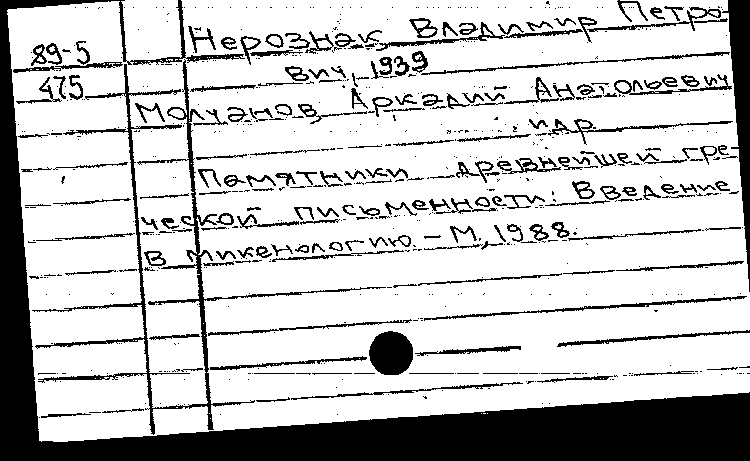 89-5
475
Нерознак, Владимир Петро-
вич, 1939
Молчанов, Аркадий Анатольевич
и др
Памятники древнейшей гре-
ческой письменности: Введение
в микенологию - М, 1988.